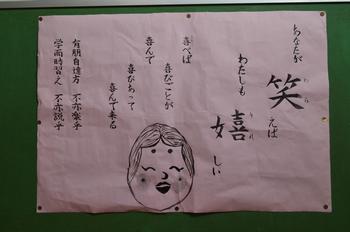 あなたが
笑えば
わら
わたしも
嬉しい
うれ
喜べば
喜びごとが
喜んで
喜びあって
喜んで来る
有朋自遠方 不亦楽乎
学而時習之 不亦説乎